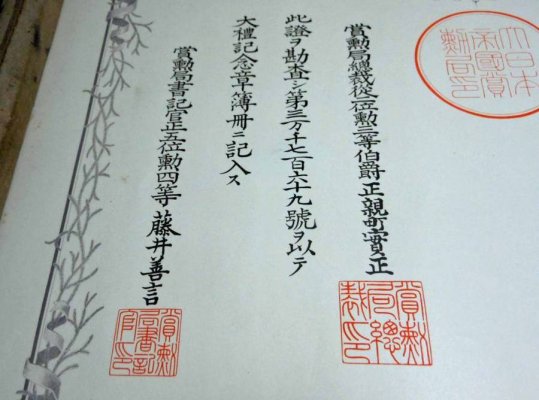 大日本
帝國賞
勳局印
賞勳局總裁從二位勳三等伯爵正親町實正
賞勳
局總
裁印
此證ヲ勘査シ第三万千七百六十九號ヲ以テ
大禮記念章簿冊ニ記入ス
賞勳局書記官正五位勳四等藤井善言
賞勳
局書記
官印